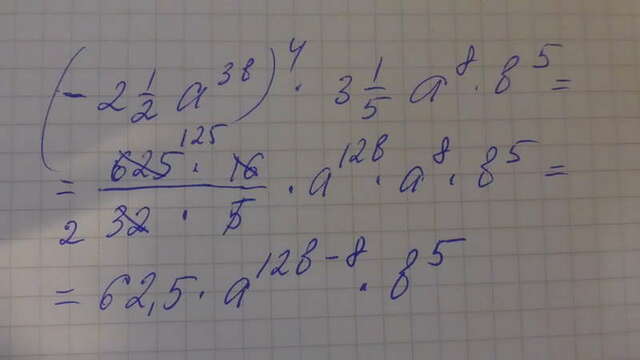 (-2 1/2 a^3в)^4 · 3 1/5 a^8 · в^5 =
= 625 125 · 16 / 2 32 · 5 · a^12в · a^8 · в^5 =
= 62,5 · a^12в-8 · в^5